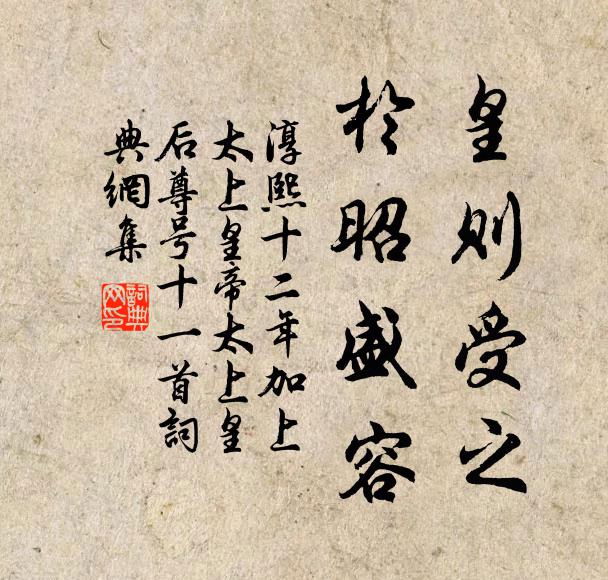 皇則受之
於昭盛容
淳熙十二年加上
太上皇帝太上皇
后尊号十一首詞
典網集
詞典
网印